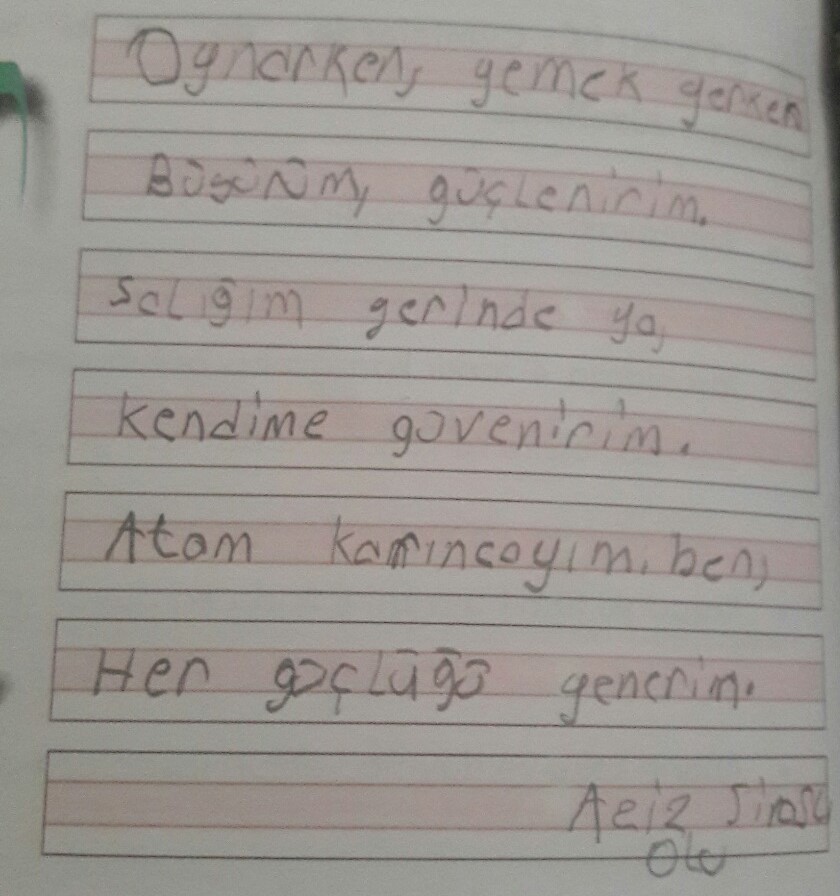 Oynarken, yemek yerken
Büyürüm, güçlenirim.
Sağlığım yerinde ya,
kendime güvenirim.
Atom karıncayım. ben,
Her güçlüğü yenerim.